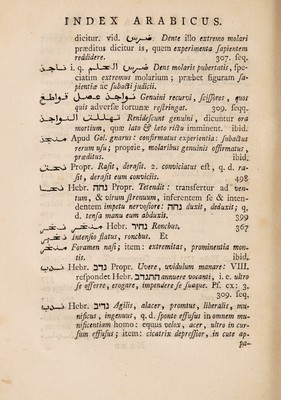 INDEX ARABICUS.
dicitur. vid. ضرس Dente illo extremo molari
præditus dicitur is, quem experimenta sapientem
reddidere. 307. seqq.
ناجذ i. q. ضرس الحلم Dens molaris pubertatis, spe-
ciatim extremus molarium; præbet figuram sa-
pientiæ ac subacti judicii.
نواجذ عصل قواطع Genuini recurvi, scissores, quos
quis adversæ fortunæ restringat. 309. seqq.
تهللت النواجذ Renidescunt genuini, dicuntur ora
mortium, quæ lato & læto rictu imminent. ibid.
منجذ Apud Gol. gnarus: confirmatus experientia: subactus
rerum usu; proprie, molaribus genuinis offirmatus,
præditus. ibid.
نحت Propr. Rasit, derasit. 2. conviciatus est, q. d. ra-
sit, derasit eum conviciis. 498
نحا Hebr. נחה Propr. Tetendit: transfertur ad ven-
tum, & virum strenuum, inferentem se & inten-
dentem impetu nervosiore: נחה duxit, deduxit; q.
d. tensa manu eum abduxit. 399
منخر Hebr. נחיר Ronchus. 367
نخير Intensio flatus, ronchus. Et
منخر Foramen nasi; item: extremitas, prominentia mon-
tis. ibid.
ندب Hebr. נדב Propr. Uvere, uvidulum manare: VIII.
respondet Hebr. התנדב Vere vacantem, i. e. ultro
se offerre, erogare, impendere se suaque. Pf. ex: 3.
309. seq.
ندب Hebr. נדיב Agilis, alacer, promtus, liberalis, mu-
nificus, ingenuus, q. d. sponte effusus in omnem mu-
nificentiam homo: equus velox, acer, ultro in cur-
sum effusus; item: cicatrix depressior, in cute ap-
pa-